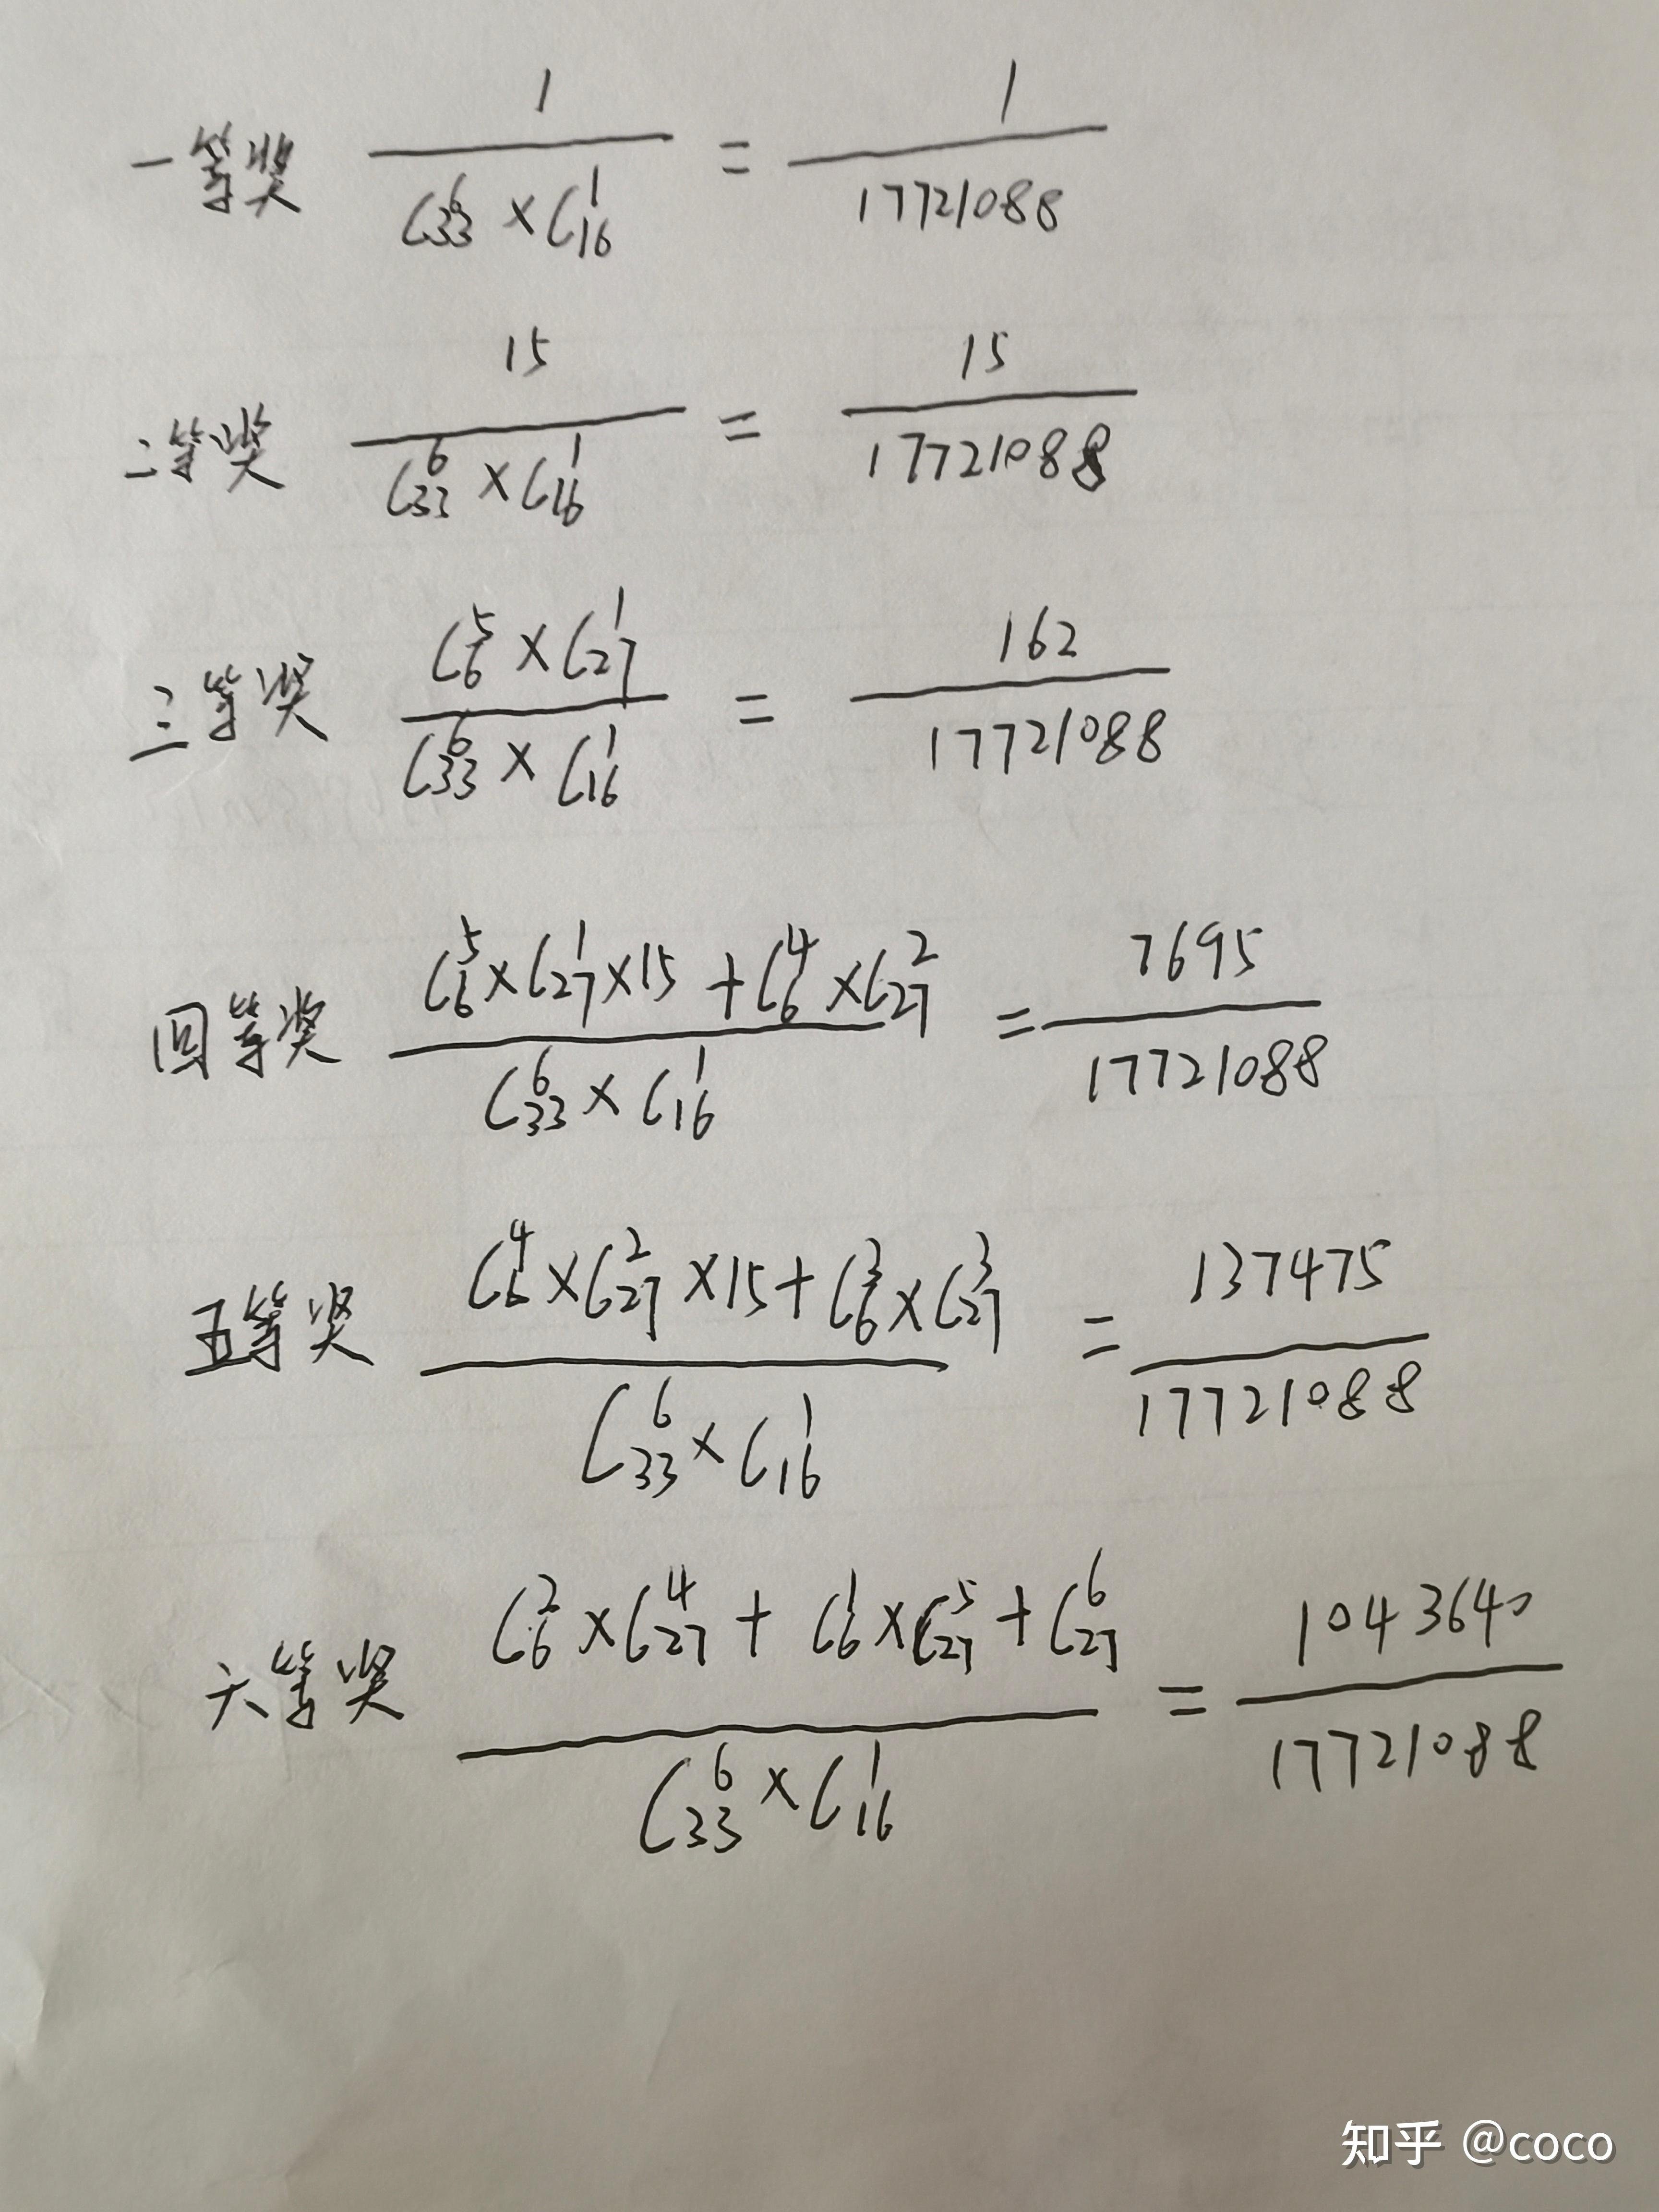 一等奖 \frac{1}{C_{33}^{6} × C_{16}^{1}} = \frac{1}{17721088}
二等奖 \frac{15}{C_{33}^{6} × C_{16}^{1}} = \frac{15}{17721088}
三等奖 \frac{C_{6}^{5} × C_{27}^{1}}{C_{33}^{6} × C_{16}^{1}} = \frac{162}{17721088}
四等奖 \frac{C_{6}^{5} × C_{27}^{1} × 15 + C_{6}^{4} × C_{27}^{2}}{C_{33}^{6} × C_{16}^{1}} = \frac{7695}{17721088}
五等奖 \frac{C_{6}^{4} × C_{27}^{2} × 15 + C_{6}^{3} × C_{27}^{3}}{C_{33}^{6} × C_{16}^{1}} = \frac{137475}{17721088}
六等奖 \frac{C_{6}^{2} × C_{27}^{4} + C_{6}^{1} × C_{27}^{5} + C_{27}^{6}}{C_{33}^{6} × C_{16}^{1}} = \frac{1043640}{17721088}
知乎 @coco